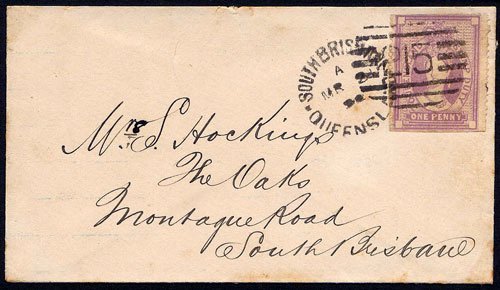 SOUTH BRISBANE
A
MR
QUEENSL
DUTY
ONE PENNY
Mrs S. Hockings
The Oaks
Montague Road
South Brisbane